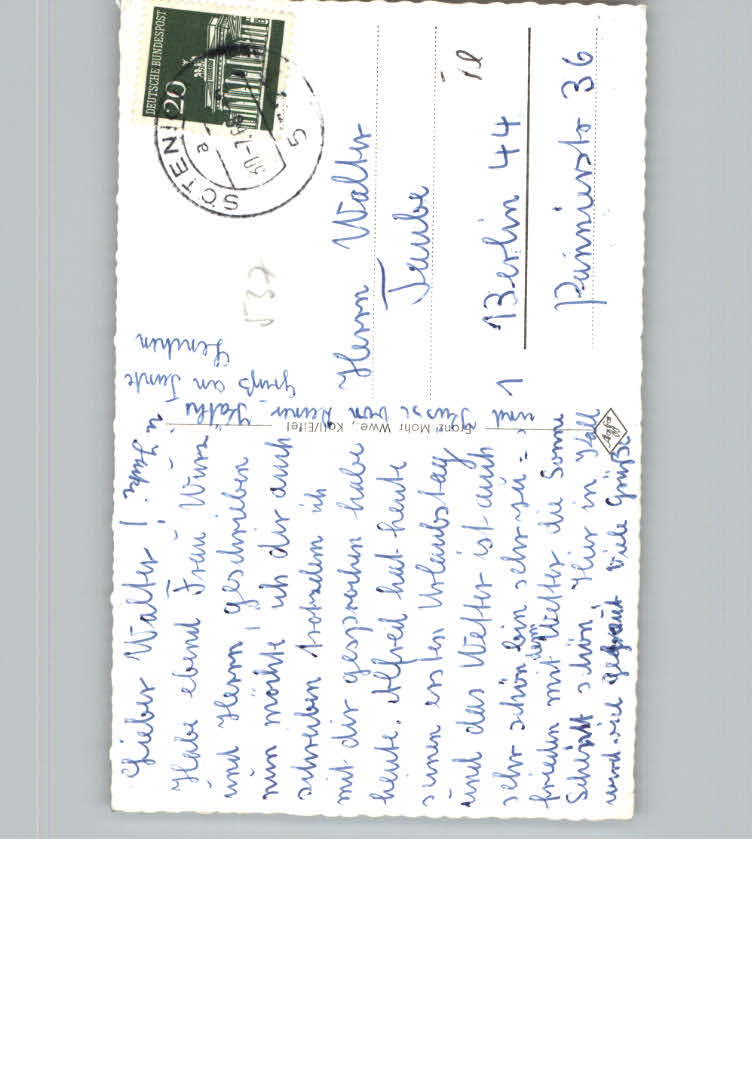 Lieber Walter!
u Tante
Habe ebend Frau Wurz
und Herrn, geschrieben
nun möchte ich dir auch
schreiben trotzdem ich
mit dir gesprochen habe
heute. Alfred hat heute
seinen ersten Urlaubstag
und das Wetter ist auch
sehr schön bin sehr zu-
frieden mit dem Wetter die Sonne
scheint schön. Hier in Kall
wird viel gebaut viele Grüße
und
Kusse von Reiner - Kathi
Gruß an Tante
Lenchen
Franz Mohr Wwe., Kall/Eifel
Agfa
DEUTSCHE BUNDESPOST
20
SÖTENICH
a
30.-7.
5
537
Herrn Walter
Taube
1 Berlin 44
Pannierstr 36